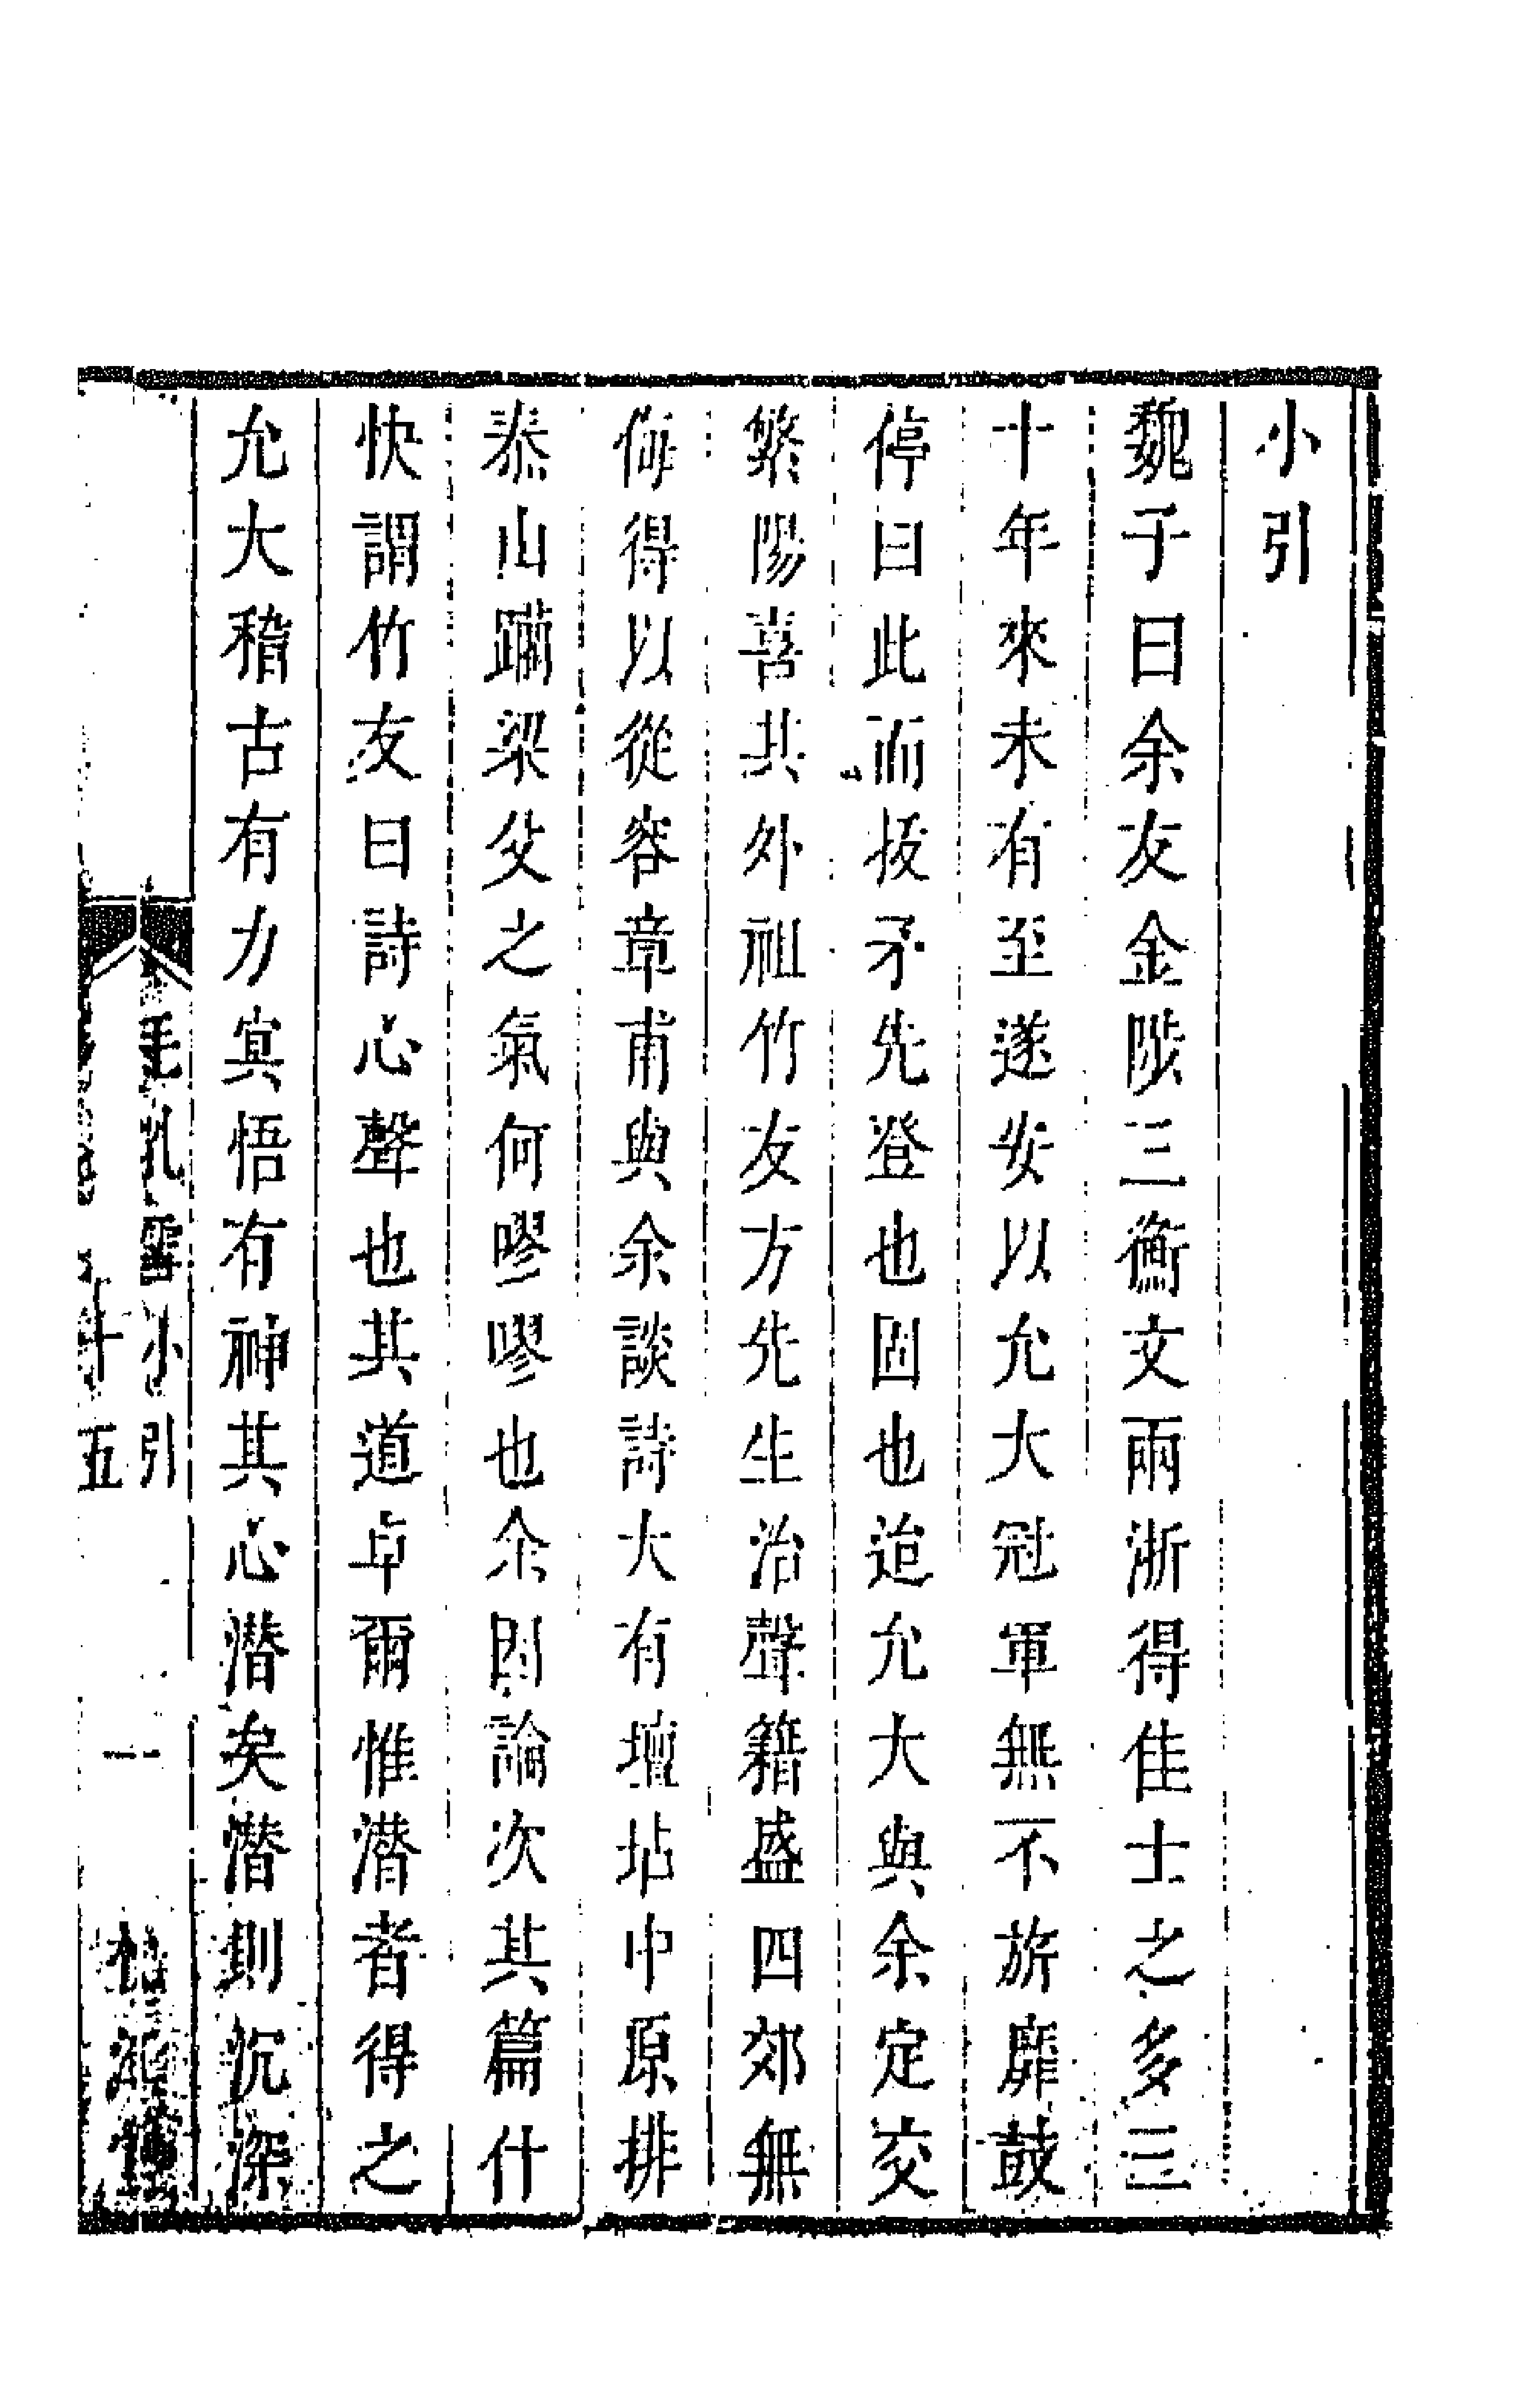 小引
魏子曰余友金陟三衡文兩浙得佳士之多三
十年來未有至遂安以允大冠軍無不旂靡鼓
停曰此而拔矛先登也固也迨允大與余定交
繁陽喜共外祖竹友方先生治聲籍盛四郊無
侮得以從容章甫與余談詩大有壇坫中原排
泰山躪梁父之氣何嘐嘐也余因論次其篇什
快謂竹友曰詩心聲也其道卓爾惟潛者得之
允大稽古有力寘悟有神其心潛矣潛則沉深
毛孔雪小引
十五
一